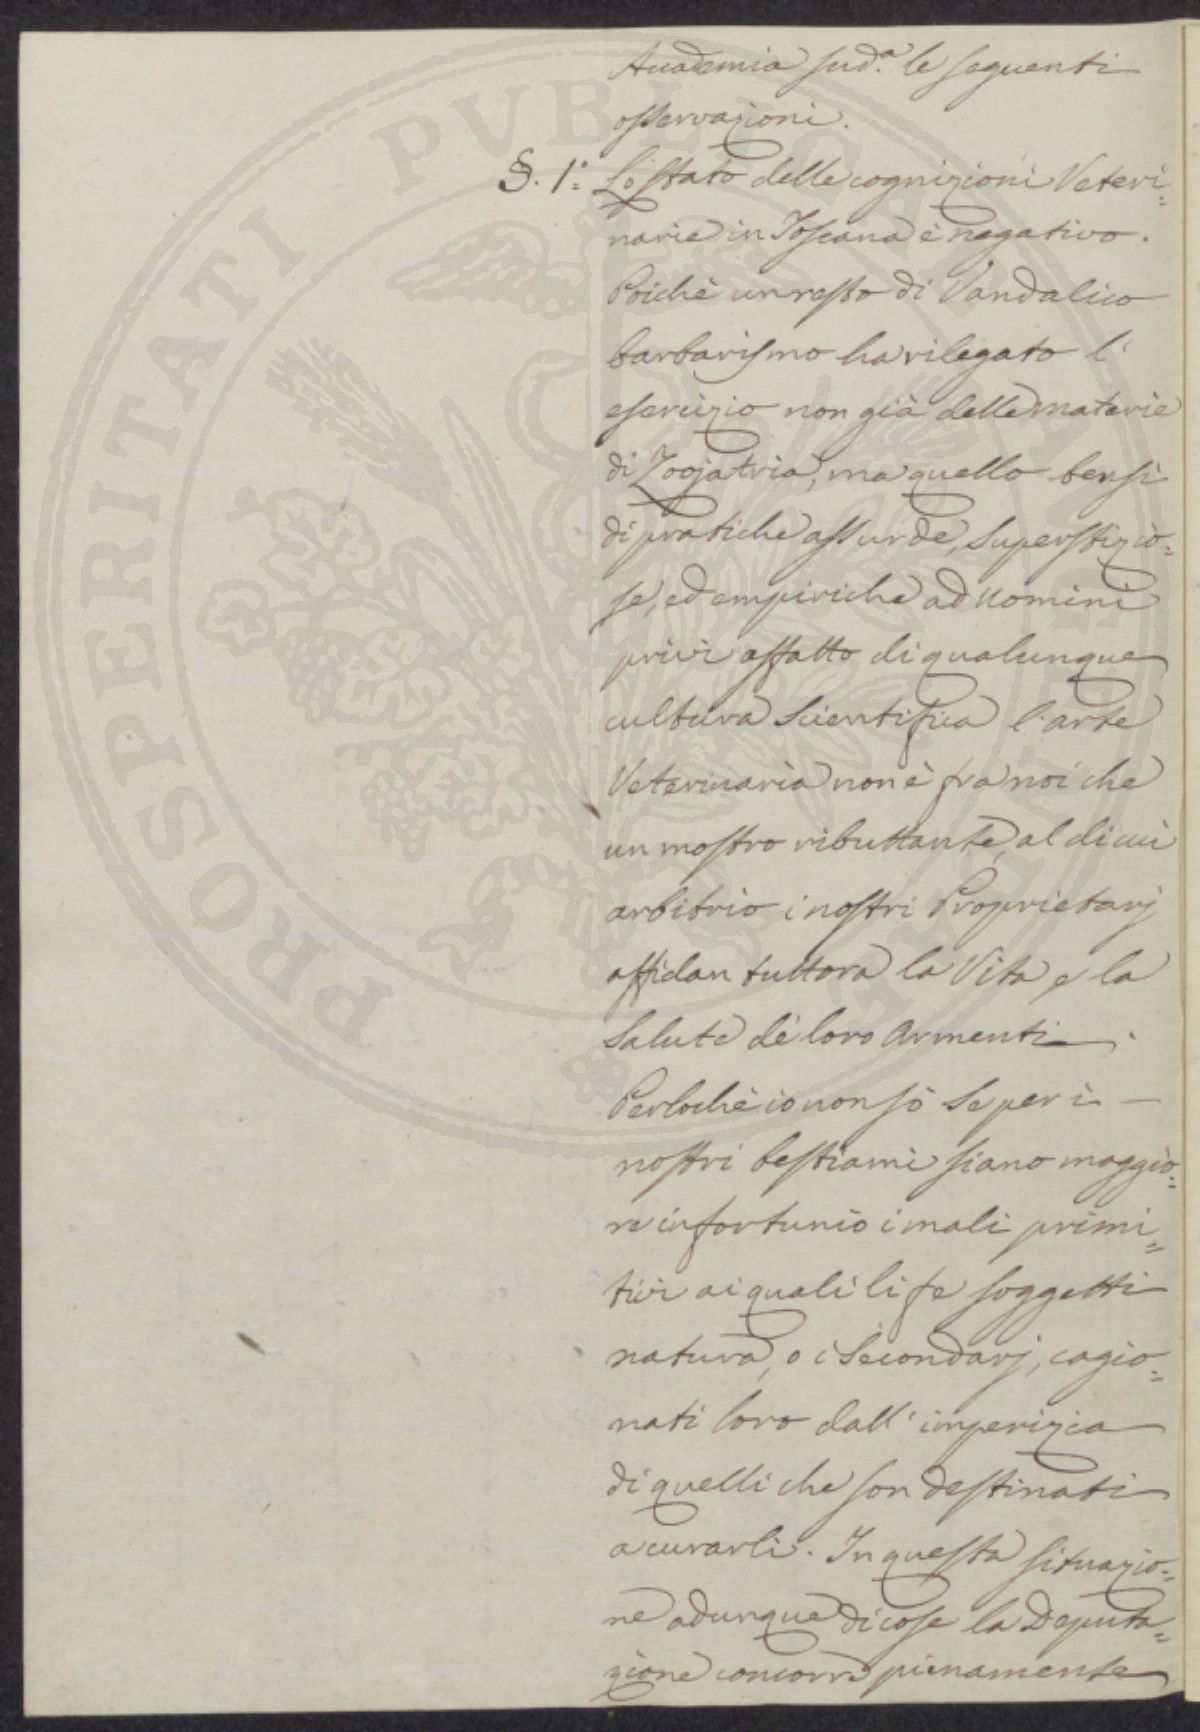 PROSPERITATI PUBLICAE AUGENDAE
Accademia sud.ª le seguenti
osservazioni.
§. 1.° Lo stato delle cognizioni Veteri=
narie in Toscana è negativo.
Poichè un resto di Vandalico
barbarismo ha rilegato l'
esercizio non già delle materie
di Zoojatria, ma quello bensì
di pratiche assurde, superstizio=
se, ed empiriche ad uomini
privi affatto di qualunque
cultura scientifica l'arte
Veterinaria non è fra noi che
un mostro ributtante, al di cui
arbitrio i nostri Proprietarj
affidan tuttora la Vita e la
Salute dè loro Armenti.
Perlochè io non sò se per i
nostri bestiami siano maggio=
re infortunio i mali primi=
tivi ai quali li fe soggetti
natura, o i Secondarj, cagio=
nati loro dall'imperizia
di quelli che son destinati
a curarli. In questa situazio=
ne adunque di cose la Deputa=
zione concorre pienamente